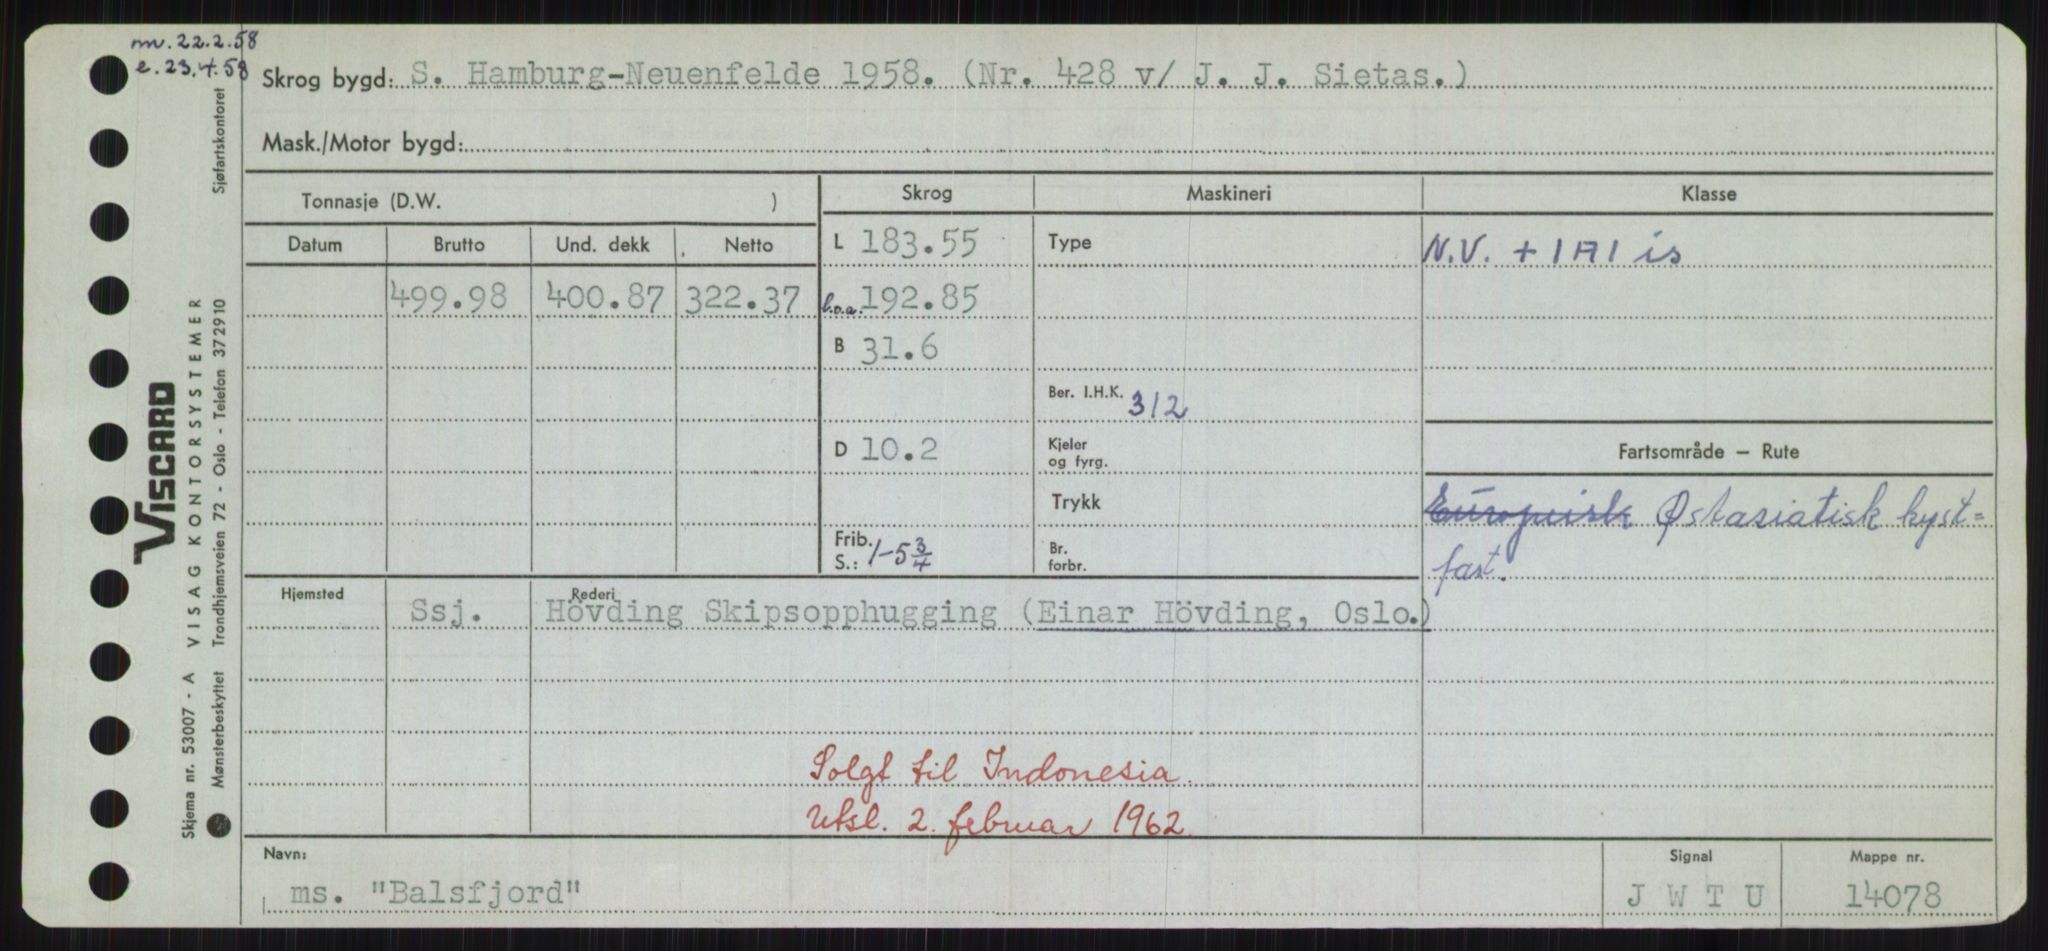 m. 22.2.58
e. 23.4.58
Skrog bygd: S. Hamburg-Neuenfelde 1958. (Nr. 428 v/ J. J. Sietas.)
Mask./Motor bygd:
Tonnasje (D.W. )
Skrog Maskineri Klasse
Datum Brutto Und. dekk Netto
L 183.55 Type N.V. + 1A1 is
499.98 400.87 322.37 l.o.a. 192.85
B 31.6
Ber. I.H.K. 312
D 10.2 Kjeler og fyrg.
Fartsområde – Rute
Trykk
Europeisk Østasiatisk kyst=
fart.
Frib. S.: 1-5 3/4
Br. forbr.
Hjemsted Rederi
Ssj. Hövding Skipsopphugging (Einar Hövding, Oslo.)
Solgt til Indonesia.
Utsl. 2. februar 1962.
Navn: Signal Mappe nr.
ms. "Balsfjord" J W T U 14078
VISCARD
Skjema nr. 53007 - A VISAG KONTORSYSTEMER
Mønsterbeskyttet Trondhjemsveien 72 - Oslo - Telefon 372910 Sjøfartskontoret